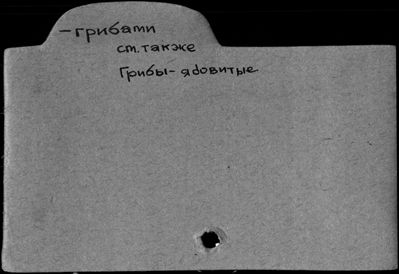 -грибами
см. также
Грибы- ядовитые